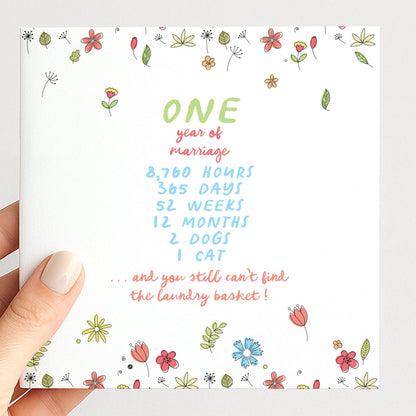 ONE
year of
marriage
8,760 HOURS
365 DAYS
52 WEEKS
12 MONTHS
2 DOGS
1 CAT
...and you still can't find
the laundry basket!